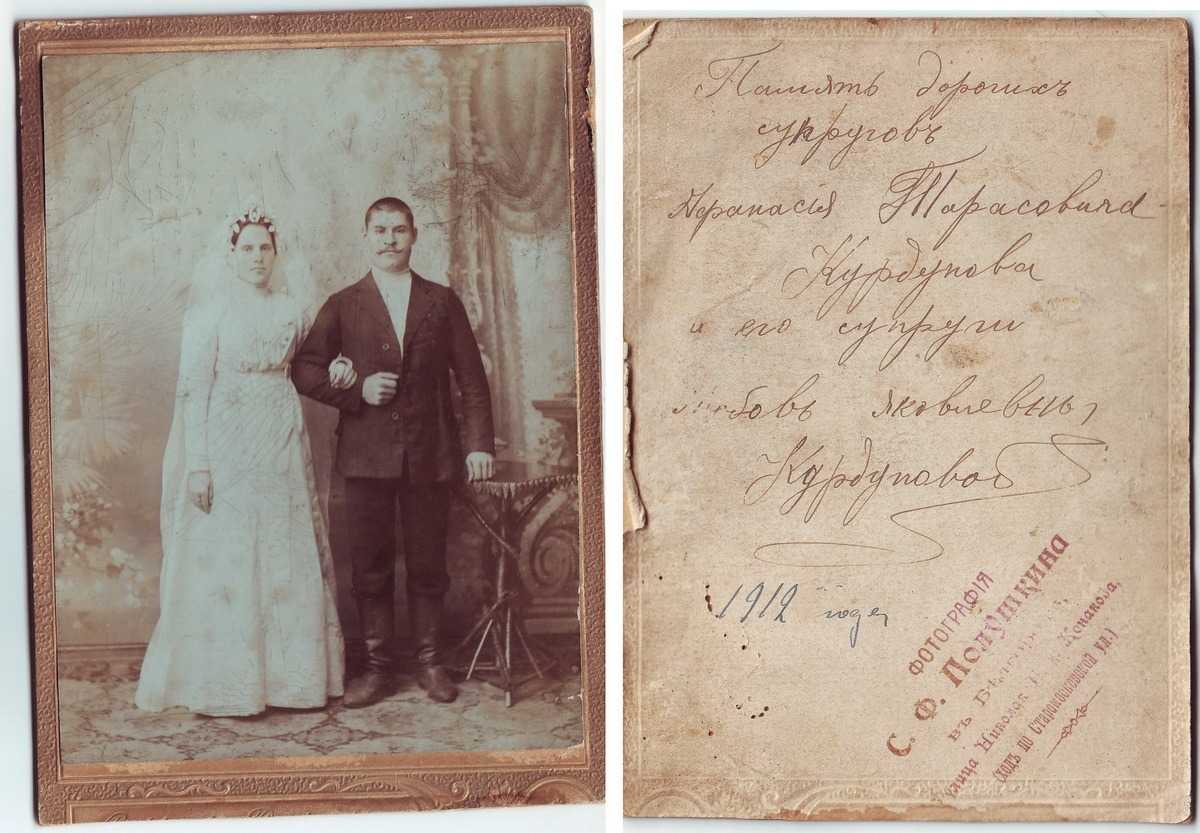 Память дорогихъ
супруговъ
Афанасія Тарасовича
Курдупова
и его супруги
Любовь яковлевны,
Курдуповой
1912 года
ФОТОГРАФІЯ
С. Ф. Полушкина
въ
Николая Конакова,
по Старокоокелской ул.)